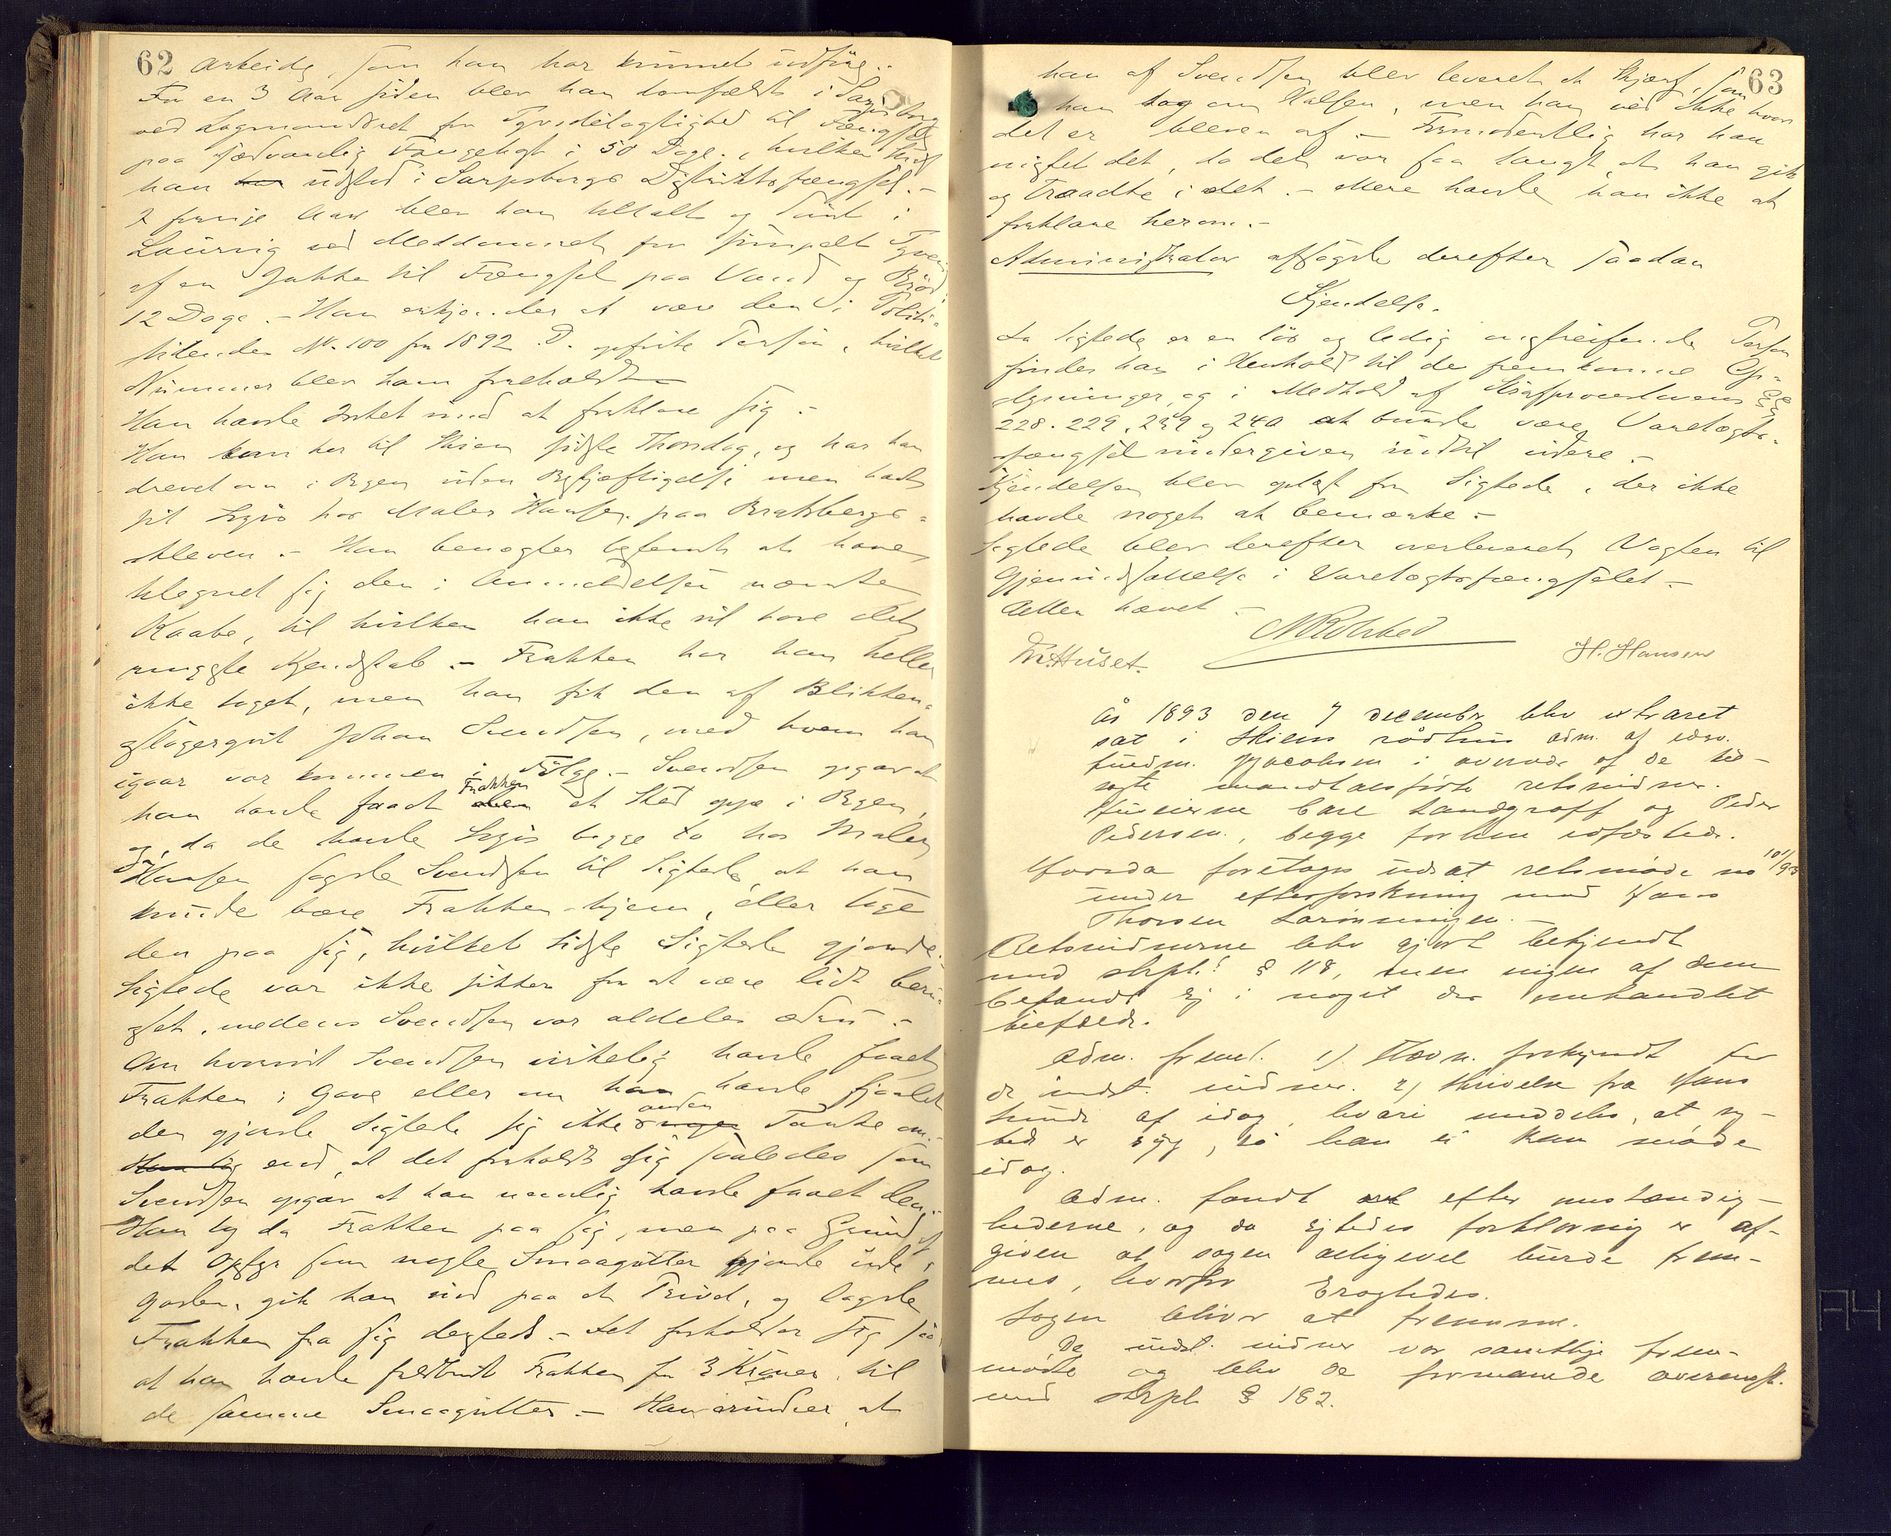 62 Arbeide, som han har kunnet udføre.
For en 3 Aar siden blev han domfældt i Sarpsborg
ved Lagmandsret for Tyvsdelagtighed til Fængsel
paa sædvanlig Fangekost i 50 Dage, hvilken Straf
han har udstod i Sarpsborgs Distriktsfængsel. -
I forrige Aar blev han tiltalt og dømt i
Laurvig ved Meddomsret for simpelt Tyveri
af en Jakke til Fængsel paa Vand og Brød i
12 Dage. - Han erkjender at være den i Politi-
tidenden No. 100 for 1892 opførte Person, hvilket
Nummer blev ham foreholdt
Han havde Intet imod at forklare sig. -
Han kom her til Skien sidste Thorsdag, og har han
drevet om i Byen uden Beskjæftigelse men havt
sit Logis hos Maler Hansen paa Bratsbergs-
kleven. - Han benegter bestemt at have
tilegnet sig den i Anmeldelsen nævnte
Kaabe, til hvilken han ikke vil have det
ringeste Kjendskab. - Frakken har han heller
ikke taget, men han fik den af Blikken-
slagersvit Johan Svendsen, med hvem han
igaar var kommen i Følge. - Svendsen opgav at
han havde faaet den Frakken et Sted oppe i Byen,
og, da de havde Logis begge to hos Maler
Hansen sagde Svendsen til Sigtede, at han
kunde bære Frakken hjem, eller tage
den paa sig, hvilket sidste Sigtede gjorde.
Sigtede var ikke sikker for at være lidt beru-
set, medens Svendsen var aldeles ædru. -
Om hvorvidt Svendsen virkelig havde faaet
Frakken i Gave eller om han havde stjaalet
den gjorde Sigtede sig ikke anden Tanke om
end, at det forholdt sig saaledes som
Svendsen opgav at han nemlig havde faaet den.
Han tog da Frakken paa sig, men paa Grund af
det Opsyn som nogle Smaagutter gjorde ude i
Gaden, gik han ind paa et Privet, og lagde
Frakken fra sig dersteds. - Det forholder sig saa
at han havde frembudt Frakken for 3 Kroner til
de samme Smaagutter. - Han erindrer, at
63
han af Svendsen blev leveret et Skjerf, som
han tog om Halsen, men han ved ikke hvor
det er bleven af. - Formodentlig har han
mistet det, da det var saa langt, at han gik
og traadte i det. - Mere havde han ikke at
forklare herom. -
Administrator afsagde derefter saadan
Kjendelse.
Da Sigtede er en løs og ledig omstreifende Person
findes han i Henhold til de fremkomne Op-
lysninger, og i Medhold af Straffeproceslovens §§
228. 229, 239 og 240 at burde være Varetægts-
fængsel undergiven indtil videre. -
Kjendelsen blev oplæst for Sigtede, der ikke
havde noget at bemærke. -
Sigtede blev derefter overleveret Vagten til
Gjenindsættelse i Varetægtsfængslet. -
Retten hævet. -
H. Hansen
År 1893 den 7 december blev extraret
sat i Skiens rådhus adm. af edsv.
fuldm. Jacobsen i overvær af de ud-
tagte mandtalsførte retsvidner.
Carl Landgraff og Peder
Pedersen, begge forhen edfæstede.
Hvorda foretages udsat retsmøde no 101/93
under efterforskning mod Hans
Thorsen Larønningen. -
Retsvidnerne blev gjort bekjendt
med strpl. § 118, men ingen af dem
befandt sig i noget der omhandlet
tilfælde.
Adm. freml. 1). Stævn. forkyndt for
de indst. vidner. 2) skrivelse fra Hans
Lunde af idag, hvori meddeles, at ved-
kommende er syg, så han ei kan møde
idag.
Adm. fandt efter omstændig-
hederne, og da sigtedes forklaring er af-
given at sagen alligevel burde frem-
mes, hvorfor eragtedes.
Sagen bliver at fremme.
De indst. vidner var samtlige frem-
mødte og blev de formanede overensst.
med strpl § 182.